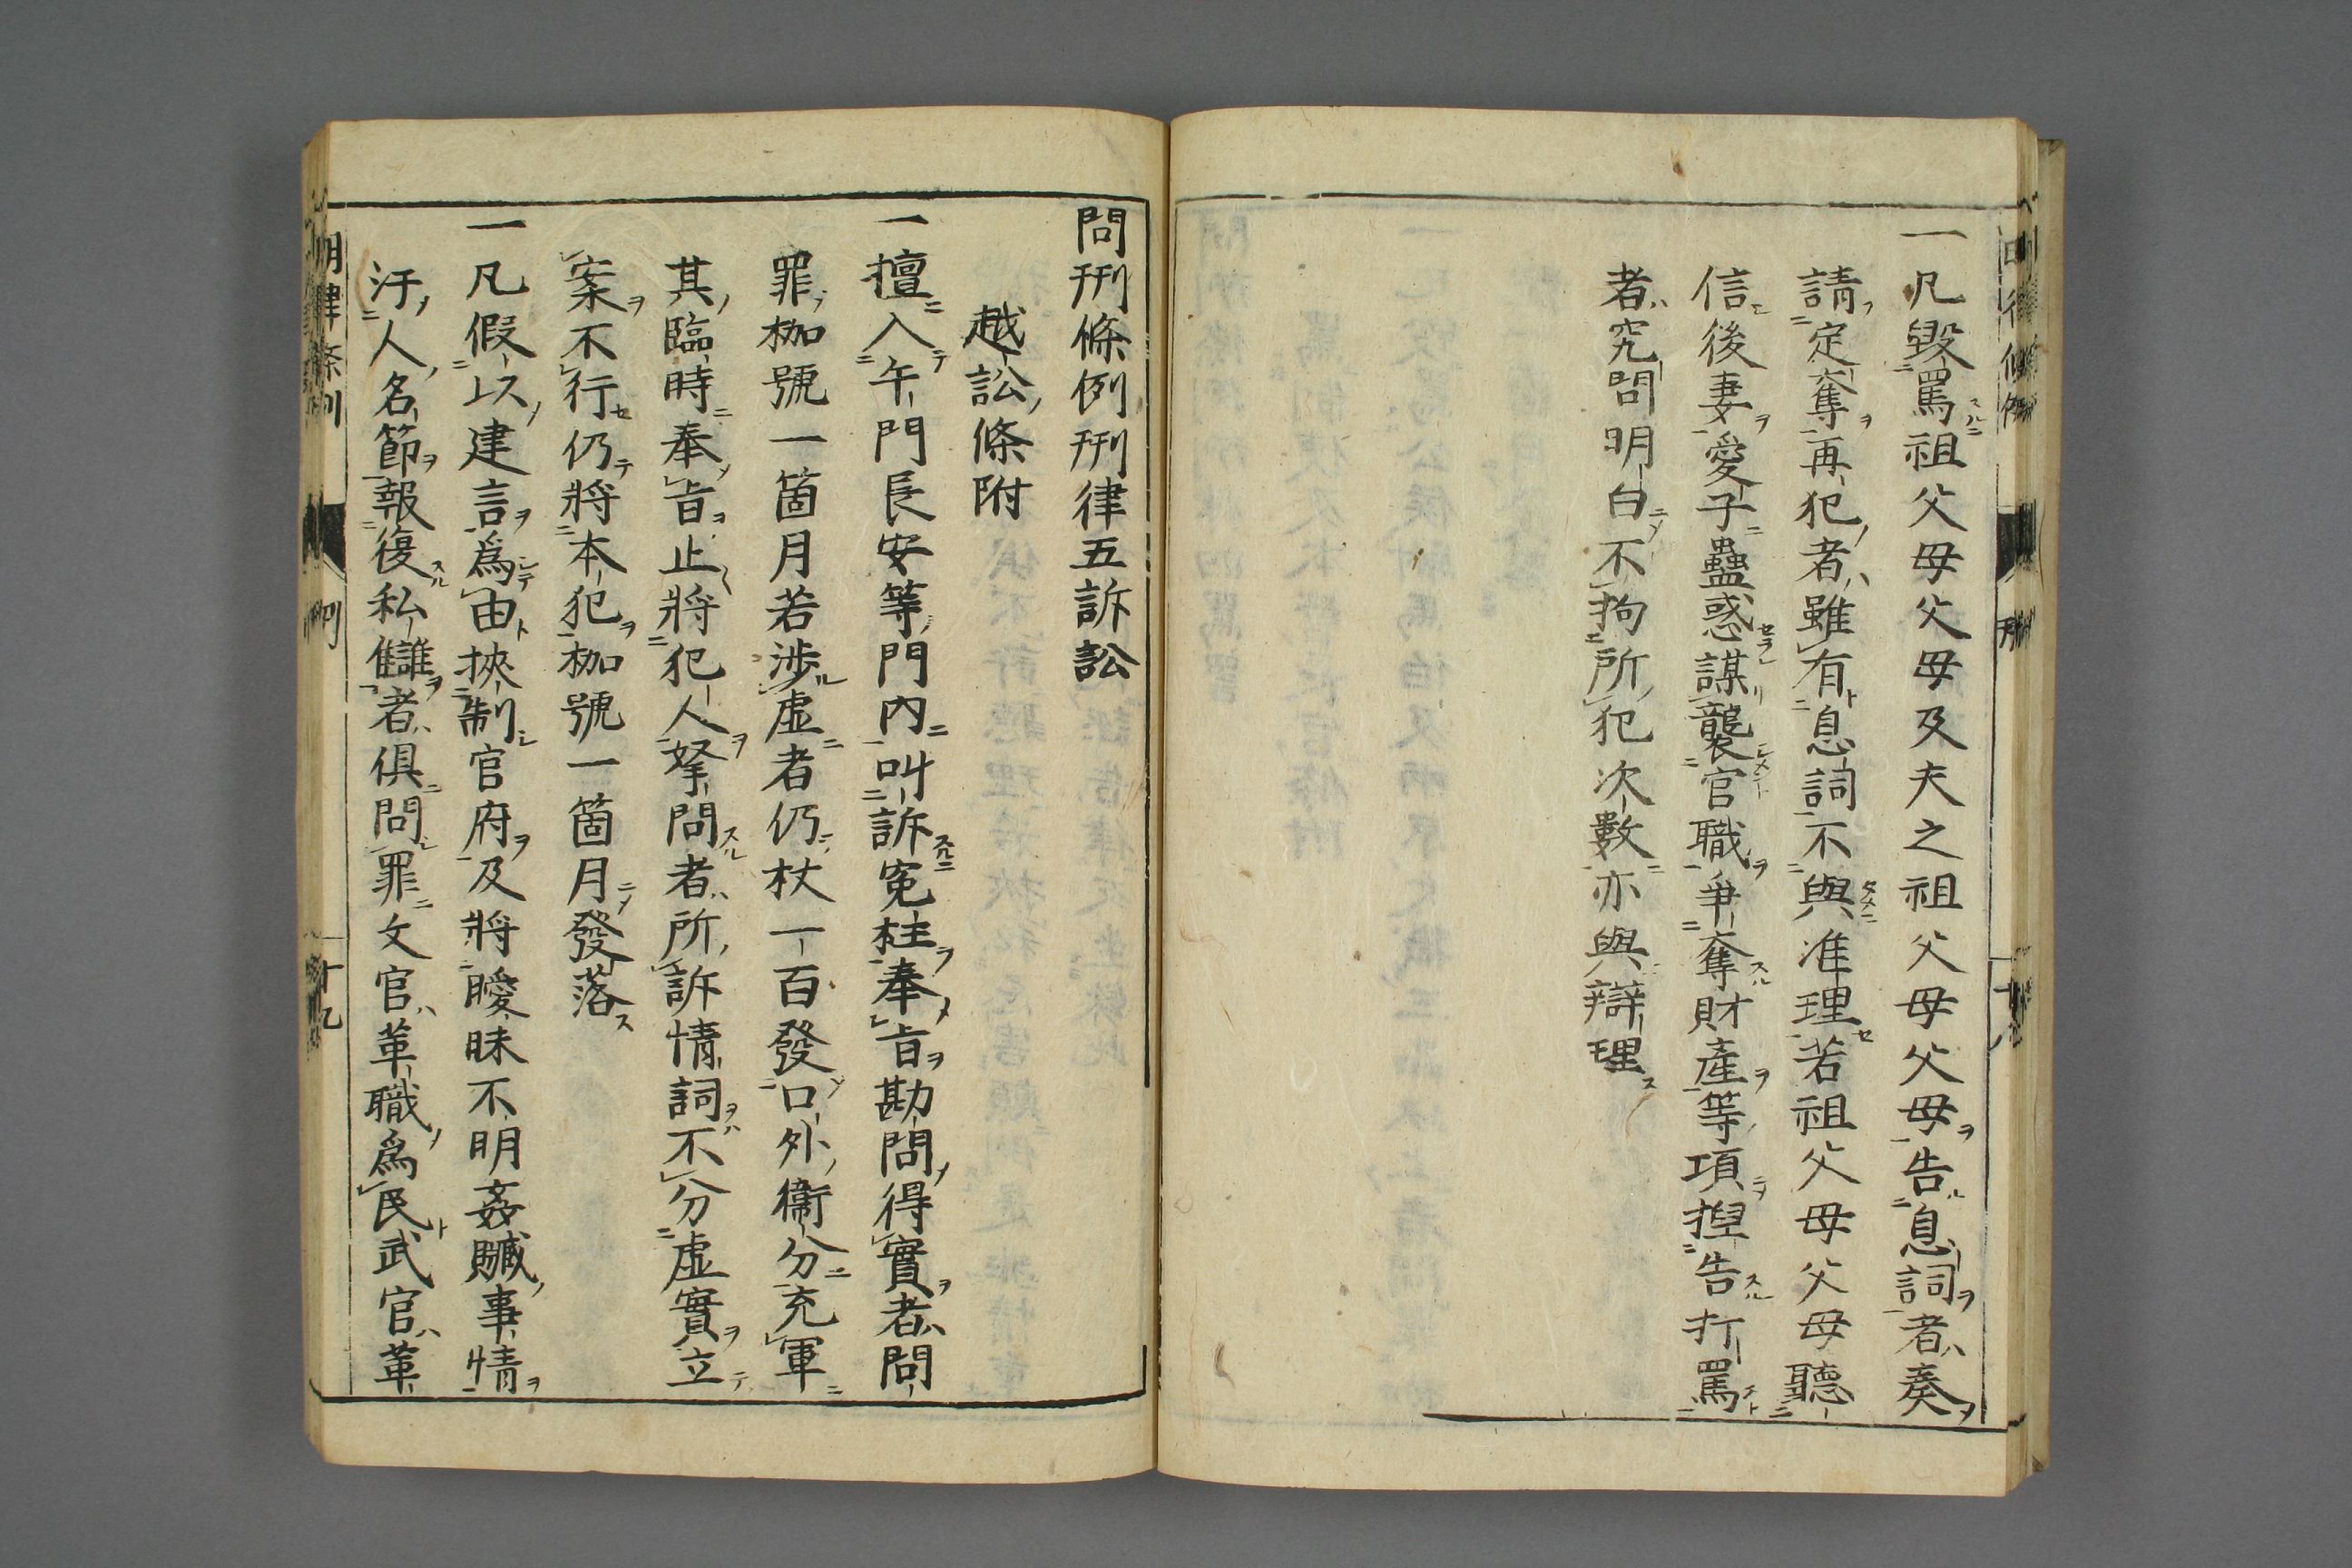 一凡毀罵祖父母父母及夫之祖父母父母告息詞者奏
請定奪再犯者雖有息詞不與准理若祖父母父母聽
信後妻愛子蠱惑謀襲官職爭奪財產等項揑告打罵
者究問明白不拘所犯次數亦與辯理
問刑條例刑律五訴訟
越訟條附
一擅入午門長安等門內叫訴寃枉奉旨勘問得實者問
罪枷號一箇月若涉虛者仍杖一百發口外衞分充軍
其臨時奉旨止將犯人拏問者所訴情詞不分虛實立
案不行仍將本犯枷號一箇月發落
一凡假以建言爲由挾制官府及將曖昧不明姦贓事情
汙人名節報復私讎者俱問罪文官革職爲民武官革
明律條例 刑 十九